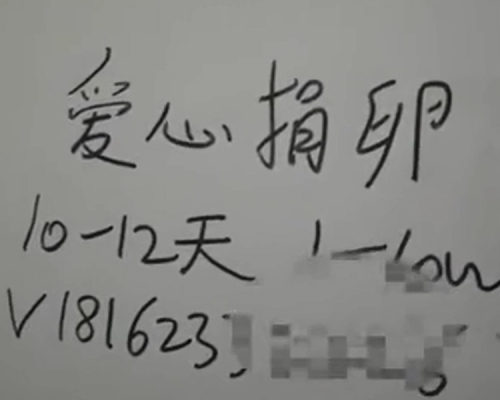 爱心捐卵
10-12天 1-10w
V181623